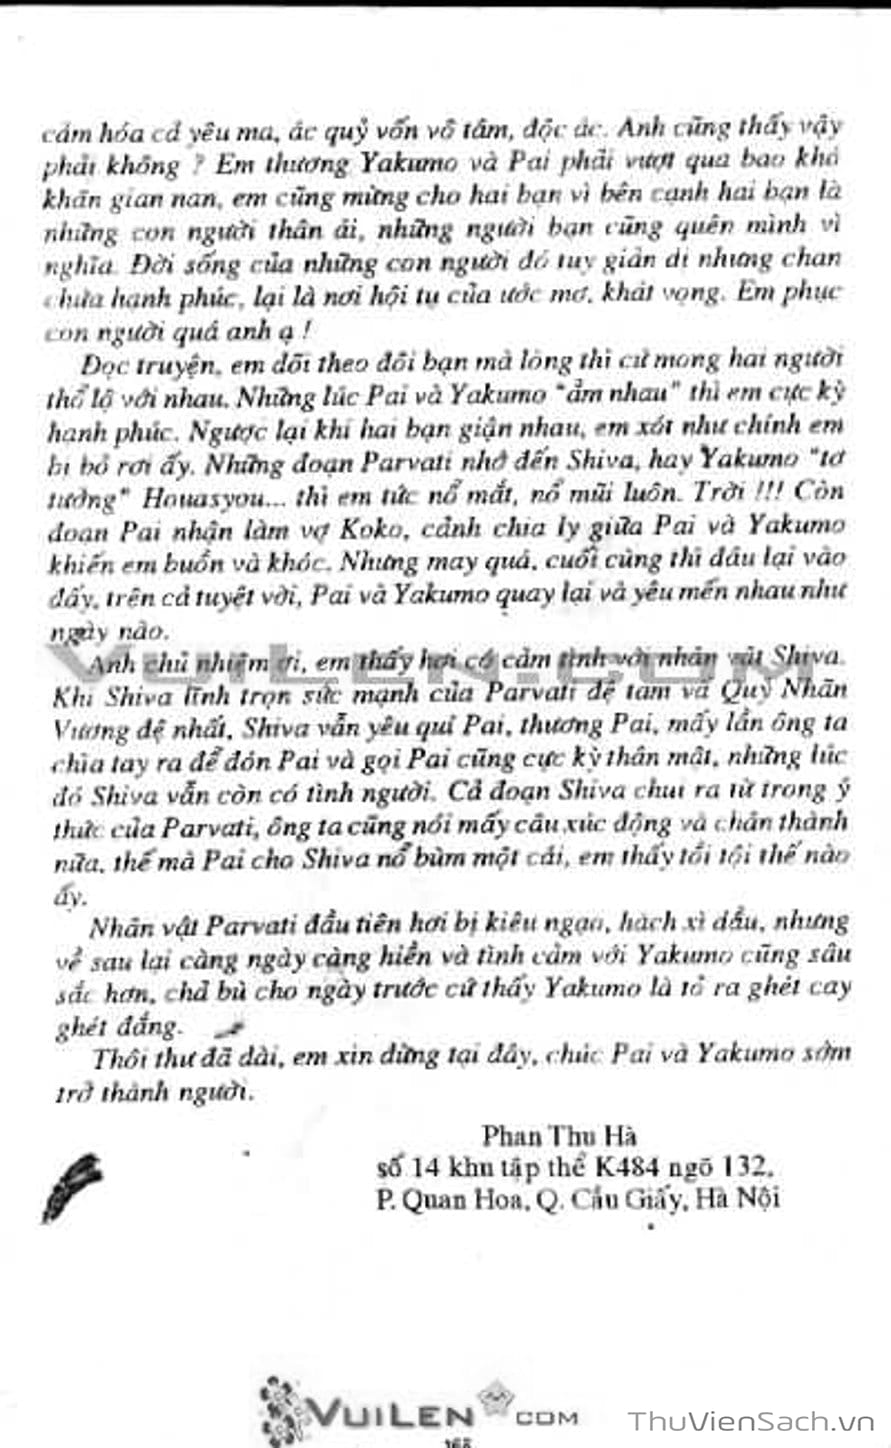 cảm hóa cả yêu ma, ác quỷ vốn vô tâm, độc ác. Anh cũng thấy vậy
phải không ? Em thương Yakumo và Pai phải vượt qua bao khó
khăn gian nan, em cũng mừng cho hai bạn vì bên cạnh hai bạn là
những con người thân ái, những người bạn cũng quên mình vì
nghĩa. Đời sống của những con người đó tuy giản dị nhưng chan
chứa hạnh phúc, lại là nơi hội tụ của ước mơ, khát vọng. Em phục
con người quá anh ạ !
Đọc truyện, em dõi theo đôi bạn mà lòng thì cứ mong hai người
thổ lộ với nhau. Những lúc Pai và Yakumo "ẳm nhau" thì em cực kỳ
hạnh phúc. Ngược lại khi hai bạn giận nhau, em xót như chính em
bị bỏ rơi ấy. Những đoạn Parvati nhớ đến Shiva, hay Yakumo "tơ
tưởng" Houasyou... thì em tức nổ mắt, nổ mũi luôn. Trời !!! Còn
đoạn Pai nhận làm vợ Koko, cảnh chia ly giữa Pai và Yakumo
khiến em buồn và khóc. Nhưng may quá, cuối cùng thì đâu lại vào
đấy, trên cả tuyệt vời, Pai và Yakumo quay lại và yêu mến nhau như
ngày nào.
Anh chủ nhiệm ơi, em thấy hơi có cảm tình với nhân vật Shiva.
Khi Shiva lĩnh trọn sức mạnh của Parvati đệ tam và Quỷ Nhãn
Vương đệ nhất, Shiva vẫn yêu quí Pai, thương Pai, mấy lần ông ta
chìa tay ra để đón Pai và gọi Pai cũng cực kỳ thân mật, những lúc
đó Shiva vẫn còn có tình người. Cả đoạn Shiva chui ra từ trong ý
thức của Parvati, ông ta cũng nói mấy câu xúc động và chân thành
nữa, thế mà Pai cho Shiva nổ bùm một cái, em thấy tồi tội thế nào
ấy.
Nhân vật Parvati đầu tiên hơi bị kiêu ngạo, hách xì dầu, nhưng
về sau lại càng ngày càng hiền và tình cảm với Yakumo cũng sâu
sắc hơn, chả bù cho ngày trước cứ thấy Yakumo là tỏ ra ghét cay
ghét đắng.
Thôi thư đã dài, em xin dừng tại đây, chúc Pai và Yakumo sớm
trở thành người.
Phan Thu Hà
số 14 khu tập thể K484 ngõ 132,
P. Quan Hoa, Q. Cầu Giấy, Hà Nội
VUILEN.COM
VUILEN COM
ThuVienSach.vn